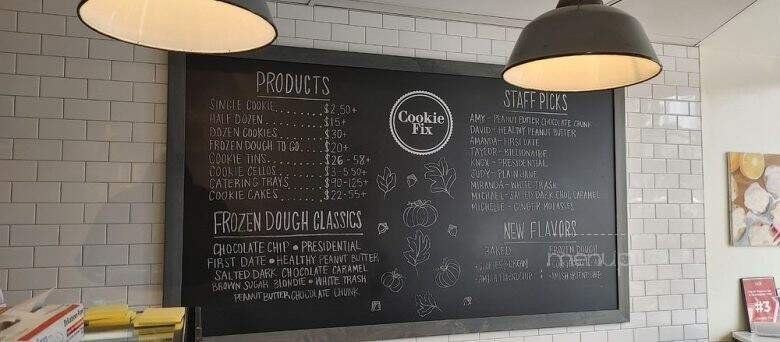 PRODUCTS
SINGLE COOKIE $2.50+
HALF DOZEN $15+
DOZEN COOKIES $30+
FROZEN DOUGH TO GO $20+
COOKIE TINS $26-58+
COOKIE CELLOS $3-5.50+
CATERING TRAYS $90-125+
COOKIE CAKES $22-55+
FROZEN DOUGH CLASSICS
CHOCOLATE CHIP • PRESIDENTIAL
FIRST DATE • HEALTHY PEANUT BUTTER
SALTED DARK CHOCOLATE CARAMEL
BROWN SUGAR BLONDIE • WHITE TRASH
PEANUT BUTTER CHOCOLATE CHUNK
Cookie
Fix
STAFF PICKS
AMY - PEANUT BUTTER CHOCOLATE CHUNK
DAVID - HEALTHY PEANUT BUTTER
AMANDA - FIRST DATE
TAYLOR - BILLIONAIRE
KNOX - PRESIDENTIAL
JUDY - PLAIN JANE
MIRANDA - WHITE TRASH
MICHAEL - SALTED DARK CHOC CARAMEL
MICHELLE - GINGER MOLASSES
NEW FLAVORS
BAKED
FROZEN DOUGH
#3